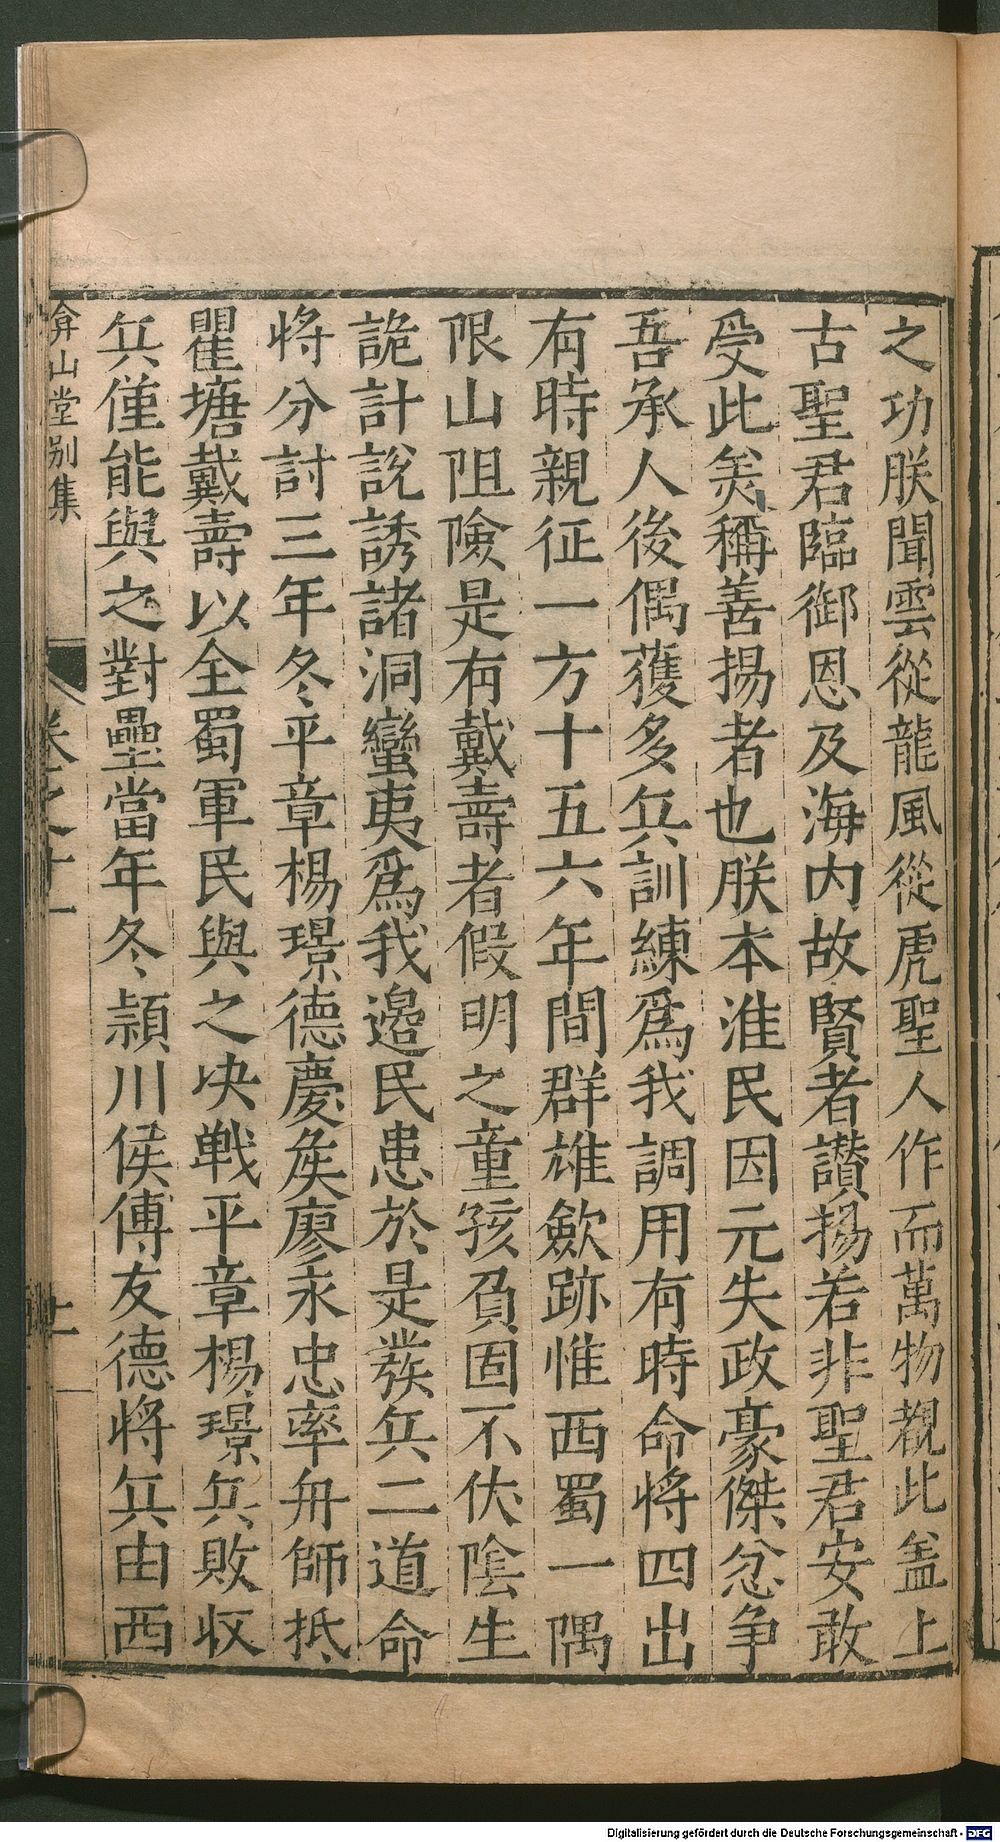 之功朕聞雲從龍風從虎聖人作而萬物覩此盖上
古聖君臨御恩及海内故賢者讃揚若非聖君安敢
受此矣稱善揚者也朕本淮民因元失政豪傑忿争
吾承人後偶獲多兵訓練爲我調用有時命將四出
有時親征一方十五六年間群雄歛跡惟西蜀一隅
限山阻險是有戴壽者假明之童孩負固不伏陰生
詭計說誘諸洞蠻夷爲我邉民患於是發兵二道命
將分討三年冬平章楊璟德慶矦廖永忠率舟師抵
瞿塘戴壽以全蜀軍民與之决戰平章楊璟兵敗収
兵僅能與之對壘當年冬潁川侯傅友德將兵由西
弇山堂别集
卷之
Digitalisierung gefördert durch die Deutsche Forschungsgemeinschaft - DFG